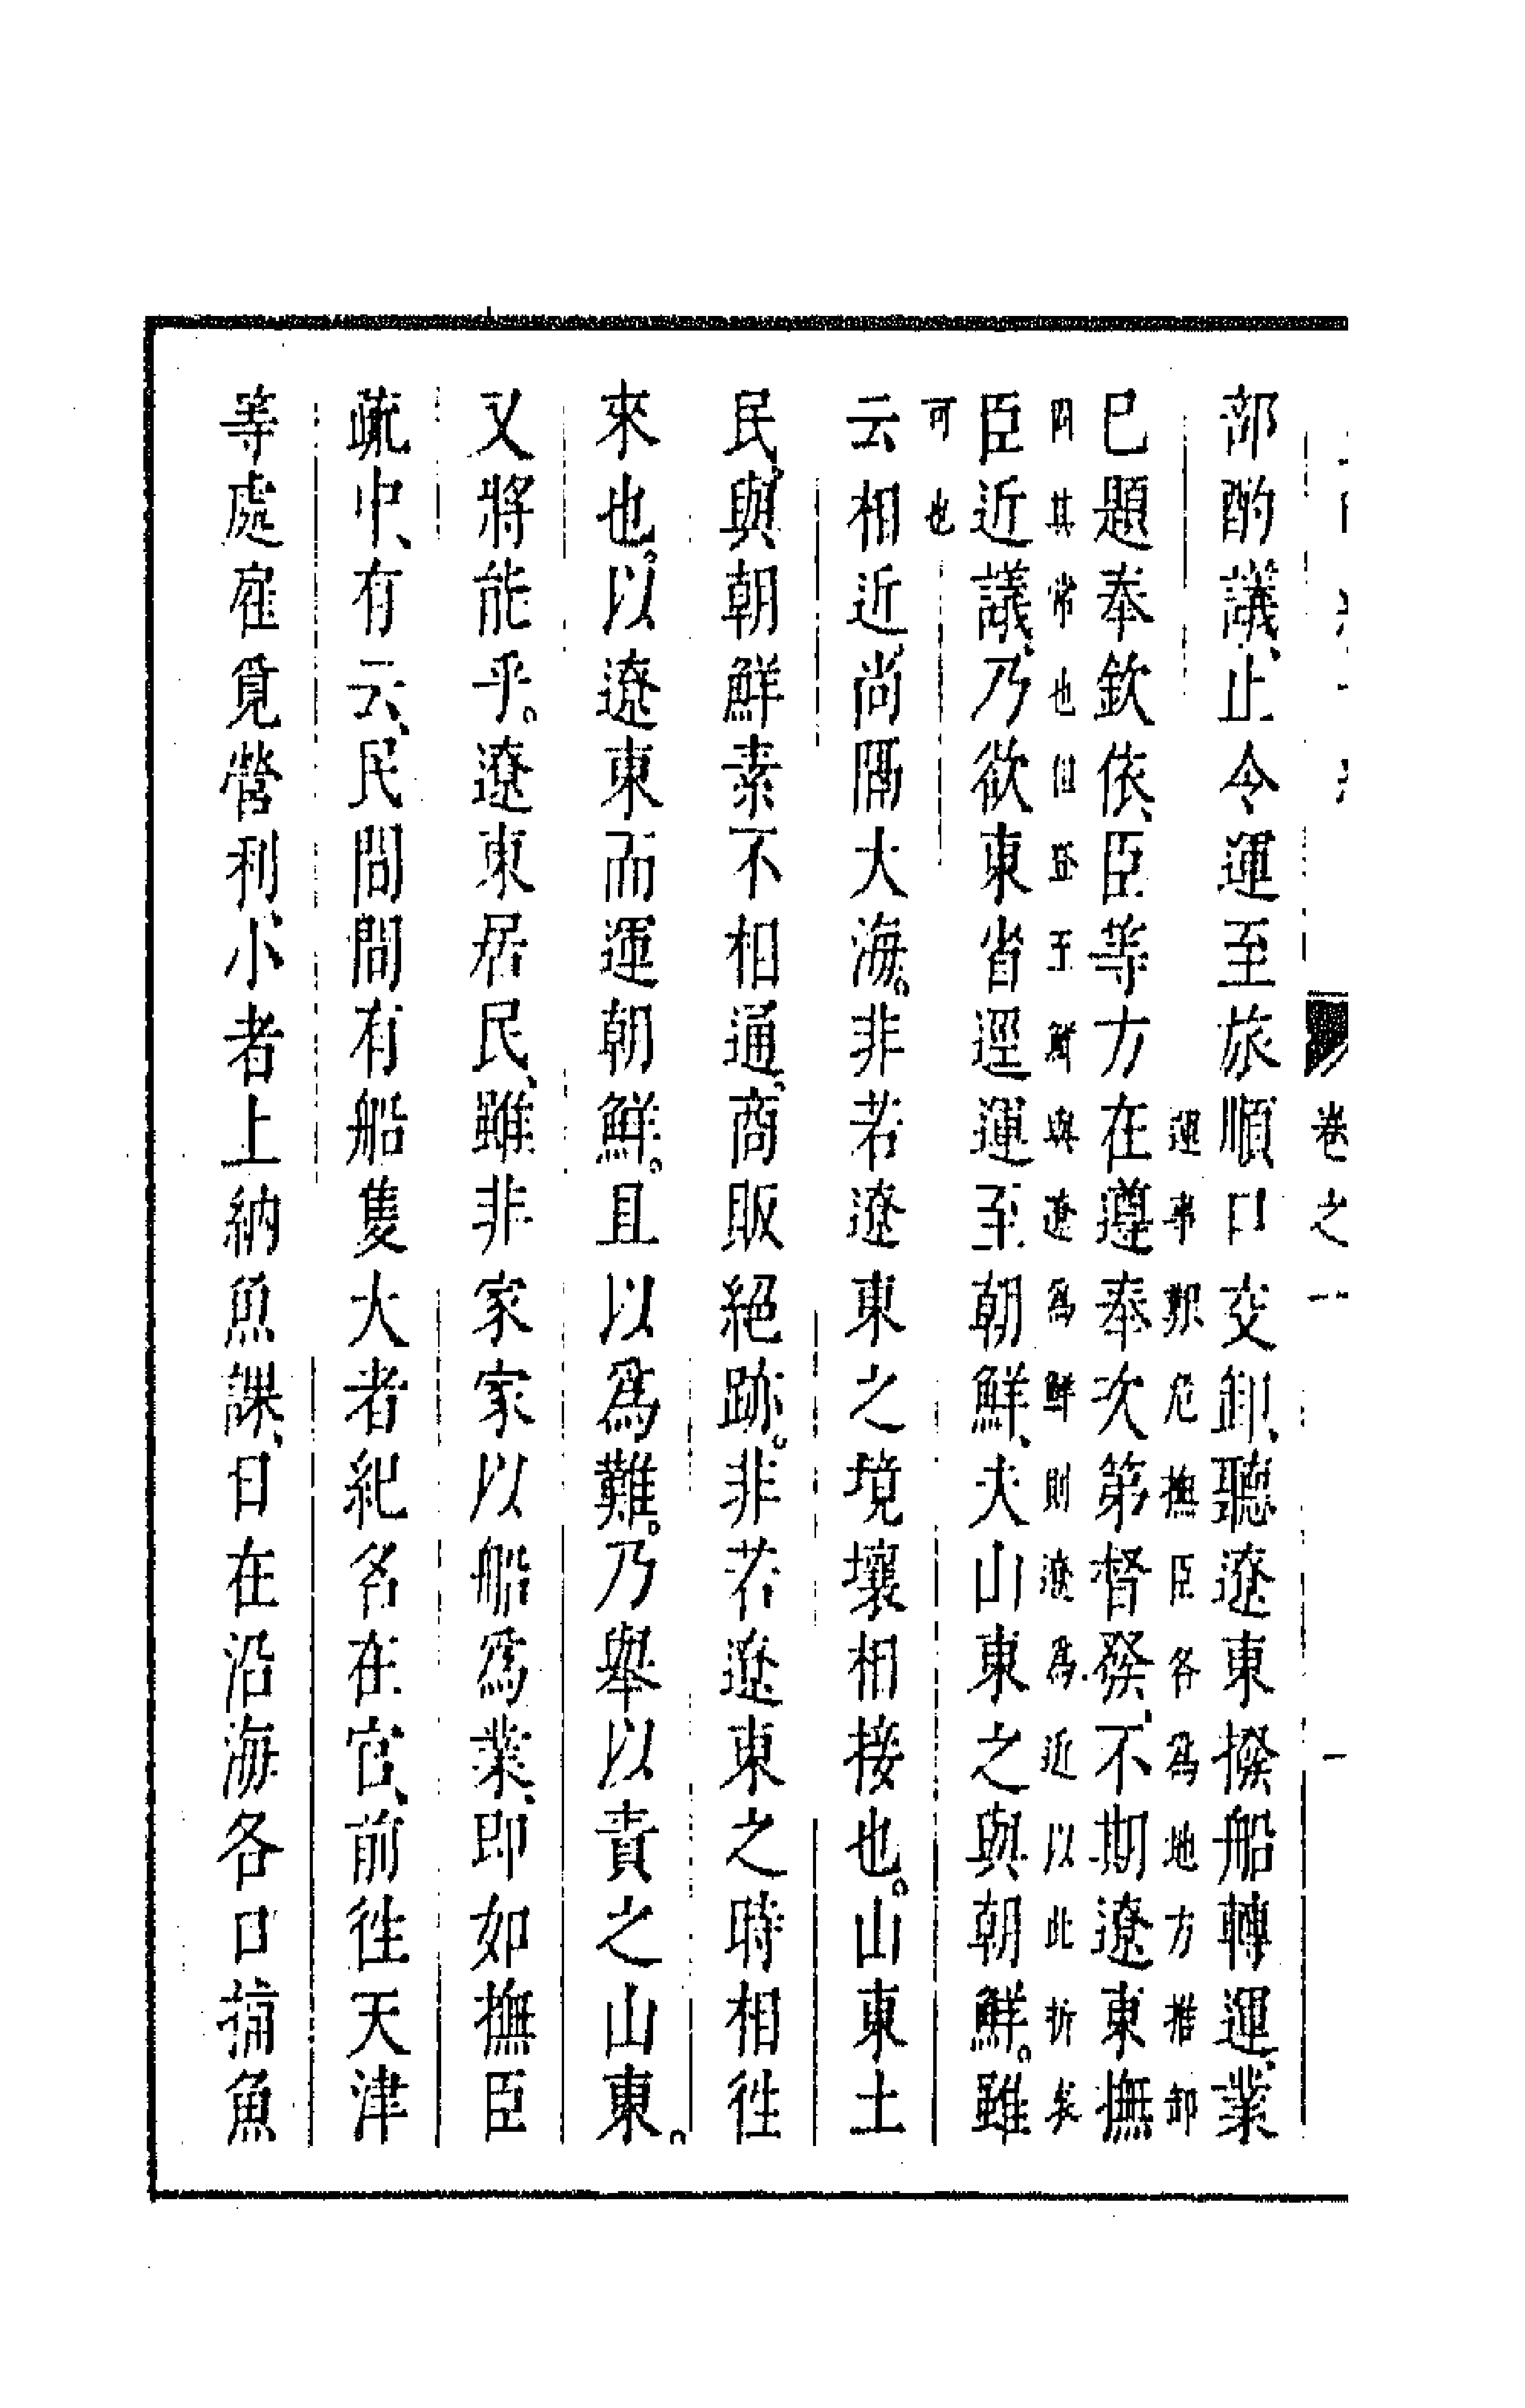 卷之一 一
部酌議、止令運至旅順口交卸、聽遼東撥船轉運、業
運事艱危撫臣各爲地方推卸
已題奉欽依、臣等方在遵奉次第督發、不期遼東撫
固其常也但登至鮮與遼爲鮮則遼爲近以此折矣
臣近議、乃欲東省逕運至朝鮮、夫山東之與朝鮮。雖
可也
云相近、尚隔大海。非若遼東之境壤相接也。山東土
民、與朝鮮素不相通。商販絕跡。非若遼東之時相徃
來也。以遼東而運朝鮮。且以爲難。乃舉以責之山東。
又將能乎。遼東居民、雖非家家以船爲業、即如撫臣
疏中、有云、民間間有船隻大者紀名在官、前徃天津
等處雇覓營利、小者上納魚課、日在沿海各口捕魚